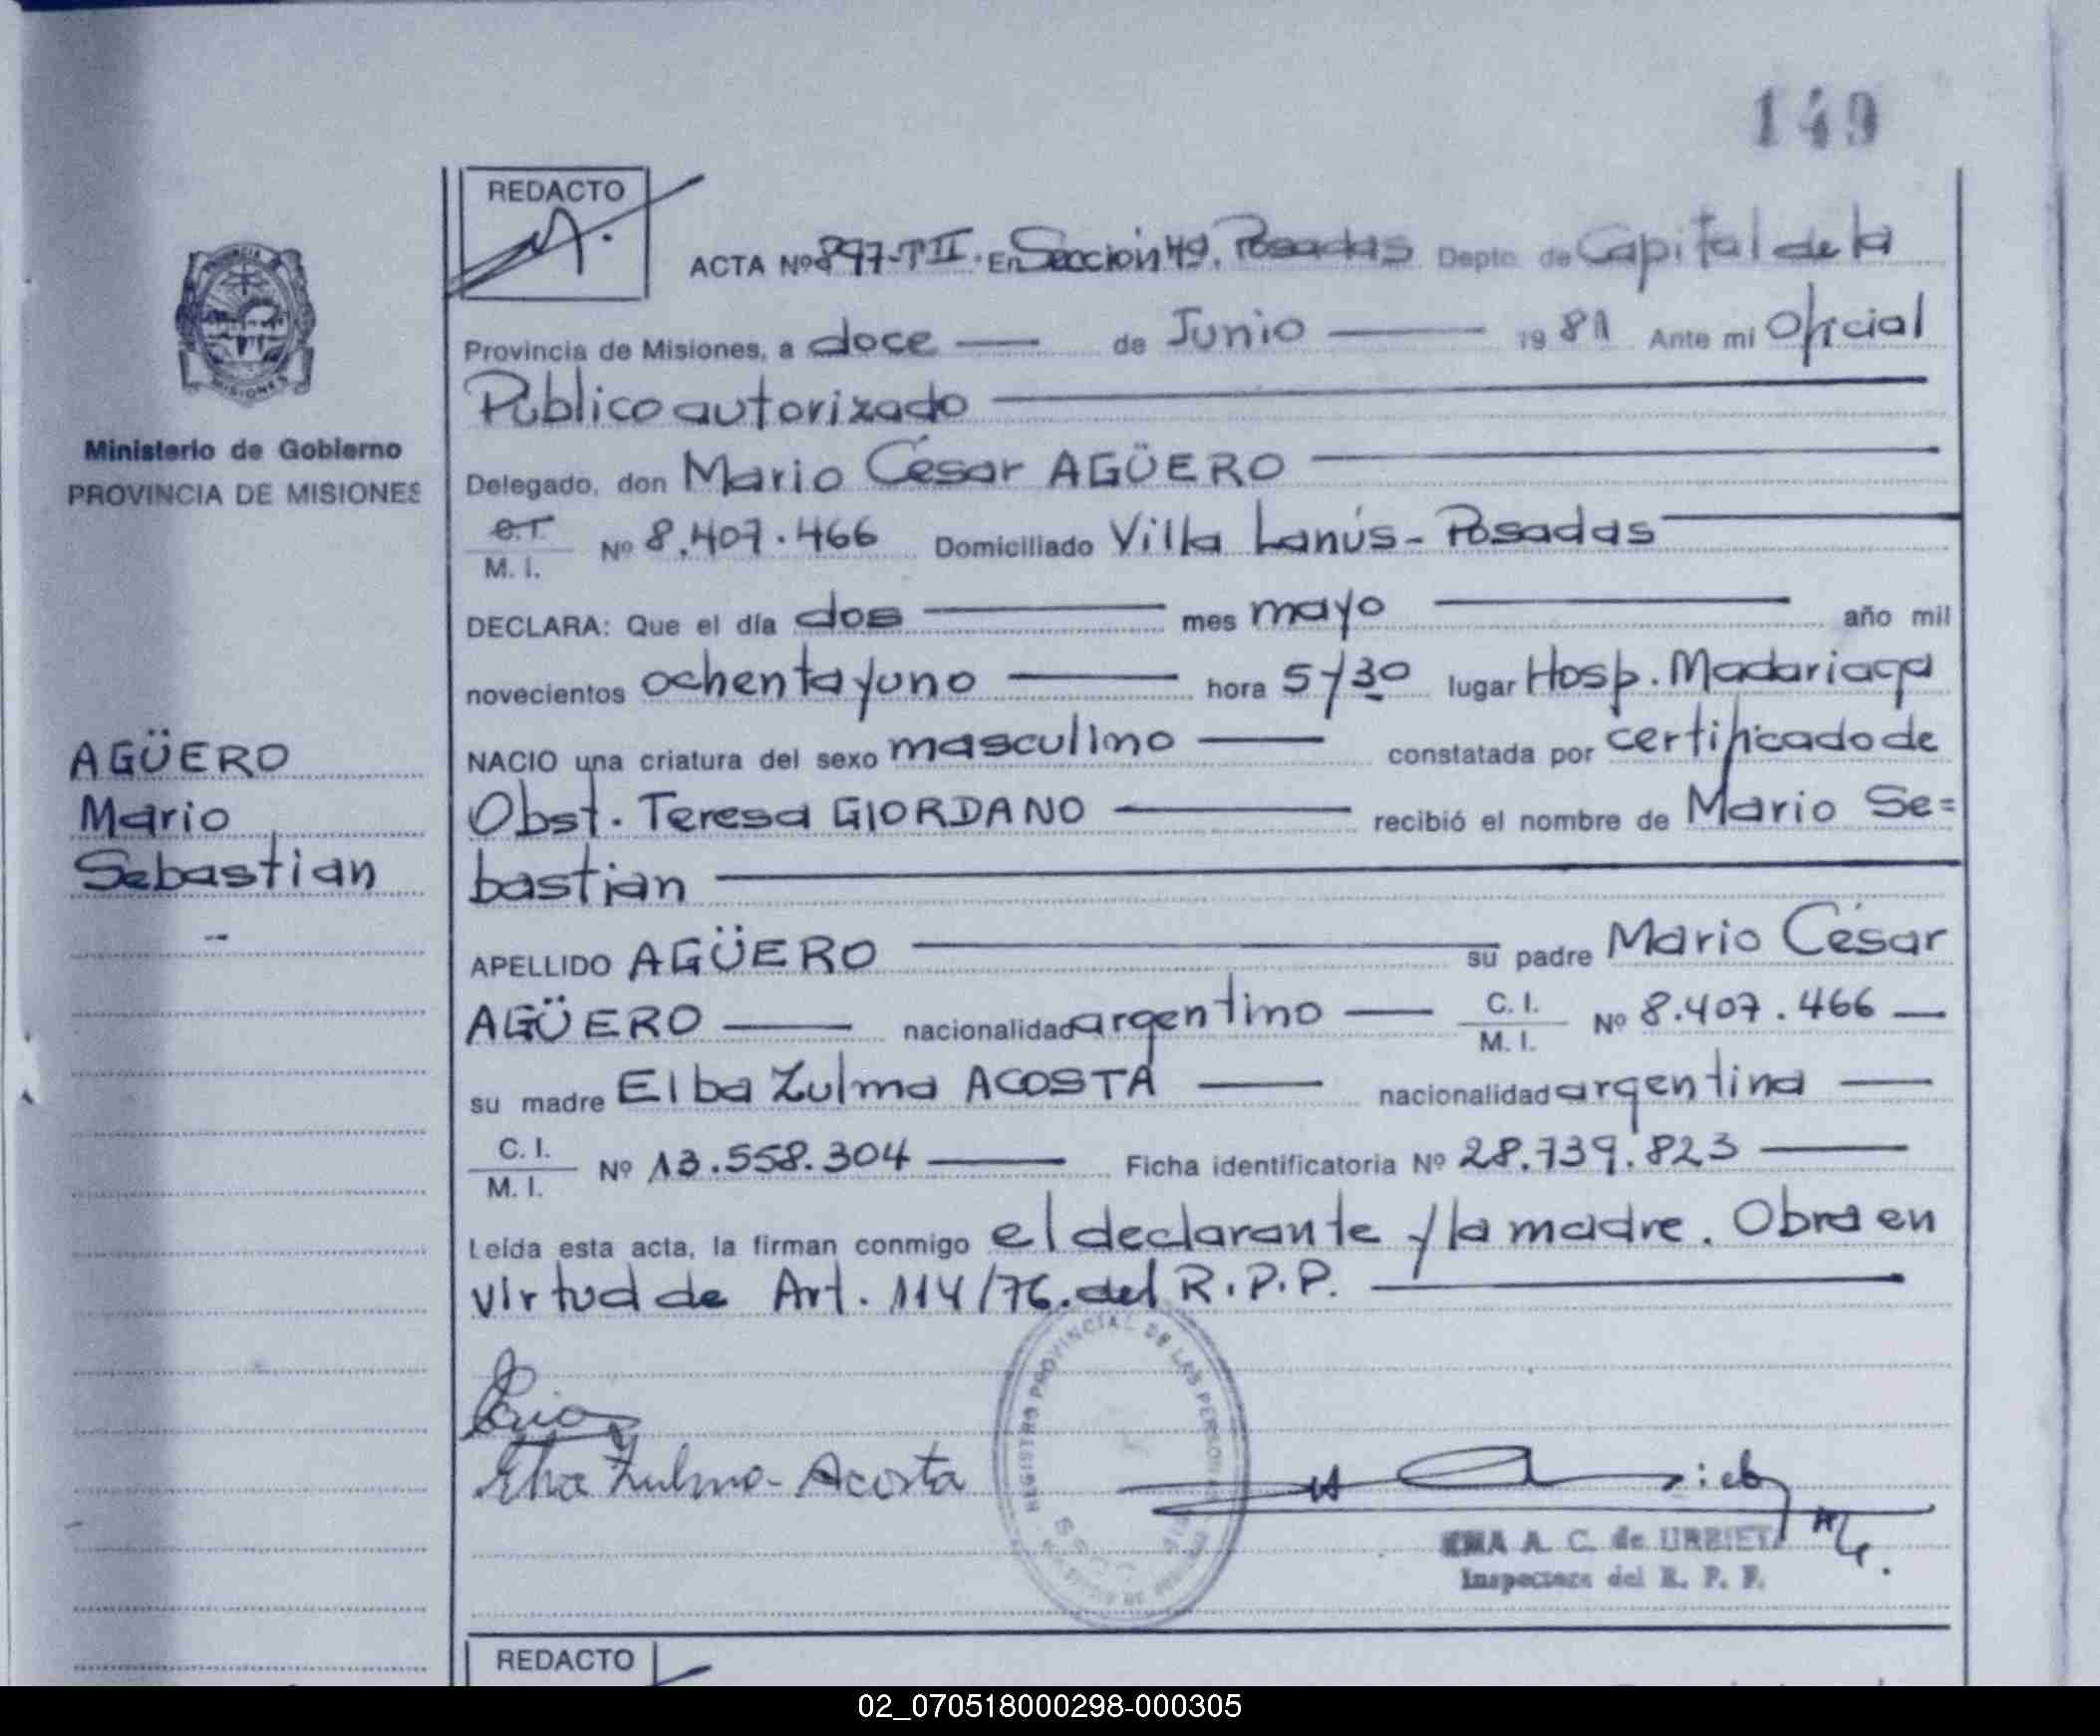 149
REDACTO
ACTA Nº 897-TII. En Sección 4ª. Posadas Depto. de Capital de la
Provincia de Misiones, a doce de Junio 1981 Ante mi Oficial
Público autorizado
Ministerio de Gobierno
PROVINCIA DE MISIONES
Delegado, don Mario César AGÜERO
C.I. M. I. Nº 8.407.466 Domiciliado Villa Lanús - Posadas
DECLARA: Que el día dos mes mayo año mil
novecientos ochenta y uno hora 5 y 30 lugar Hosp. Madariaga
NACIO una criatura del sexo masculino constatada por certificado de
Obst. Teresa GIORDANO recibió el nombre de Mario Se=
bastian
AGÜERO
Mario
Sebastian
APELLIDO AGÜERO su padre Mario César
AGÜERO nacionalidad argentino C. I. M. I. Nº 8.407.466
su madre Elba Zulma ACOSTA nacionalidad argentina
C. I. M. I. Nº 13.558.304 Ficha identificatoria Nº 28.739.823
Leída esta acta, la firman conmigo el declarante y la madre. Obra en
virtud de Art. 114/76. del R.P.P.
Elba Zulma Acosta
REGISTRO PROVINCIAL DE LAS PERSONAS
A. C. de URRIETA
Inspectora del R. P. P.
REDACTO
02_070518000298-000305